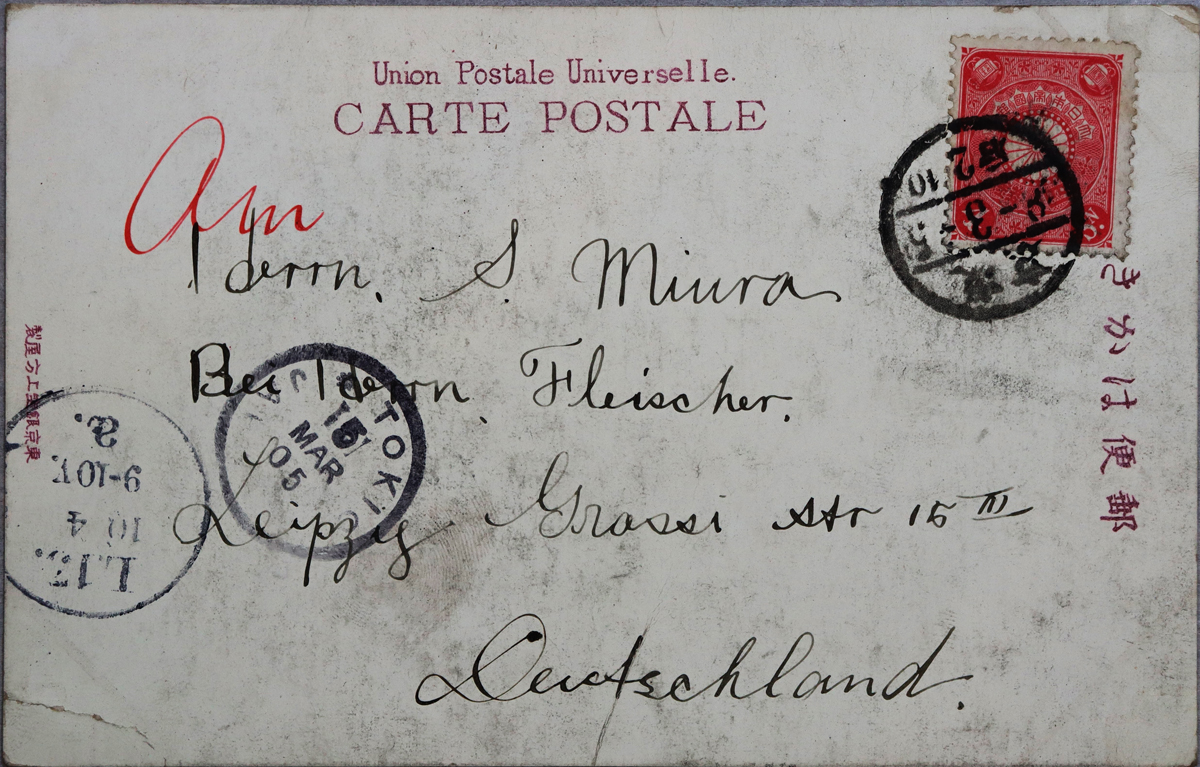 Union Postale Universelle.
CARTE POSTALE
An
Herrn. S. Miura
Bei Herrn. Fleischer.
Leipzig Grassi str 15 III
Deutschland.
郵便はかき
東京銀座上方屋製
TOKIO
15
MAR
05
L.13.
10 4
9-10V.
a.